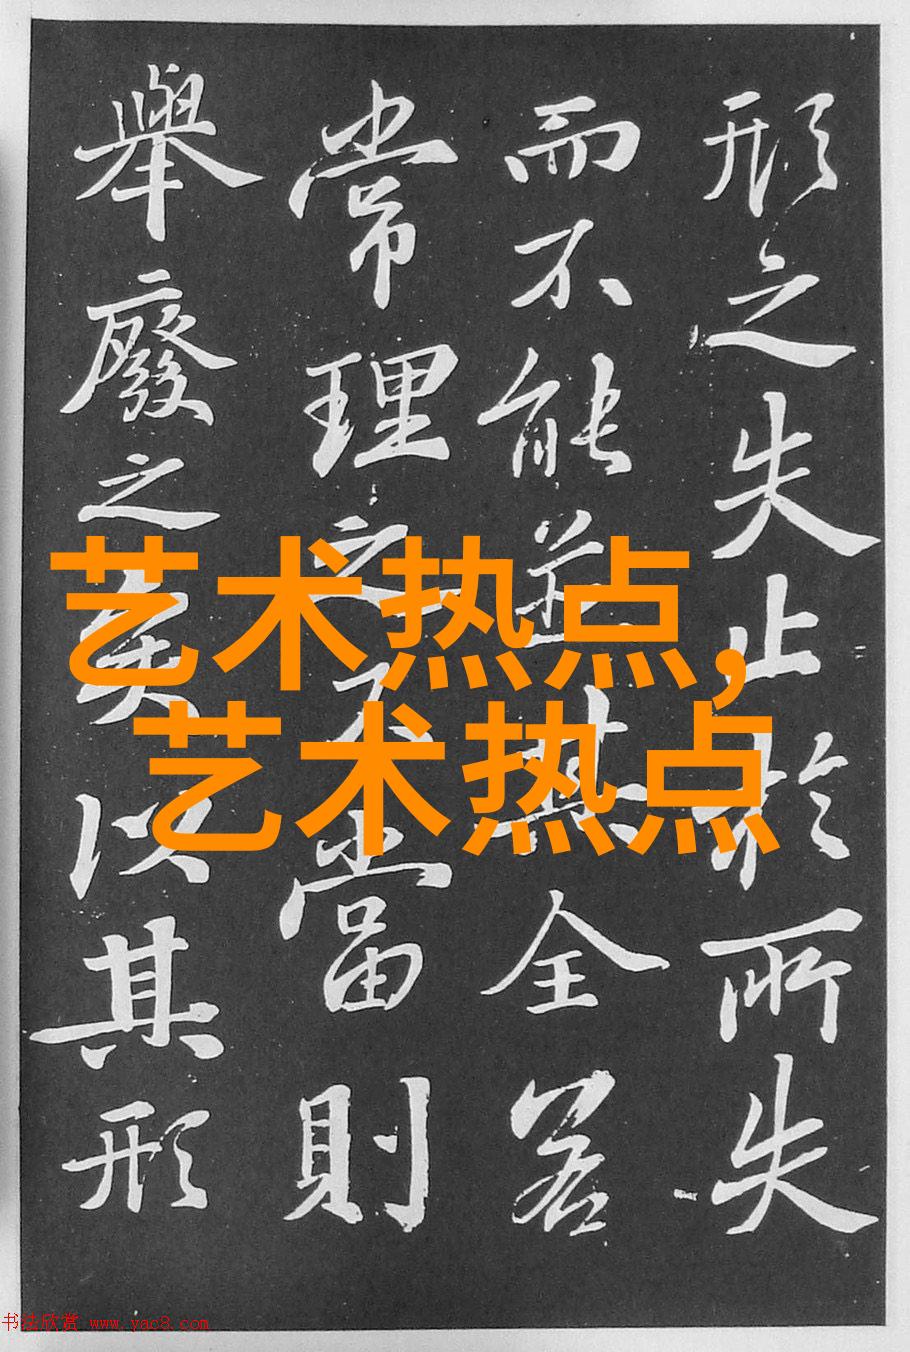 形之失止於所失
而不能其全若
常理之不當則
舉廢之矣以其形
艺术热点,
艺术热点
书法欣赏 www.yac8.com